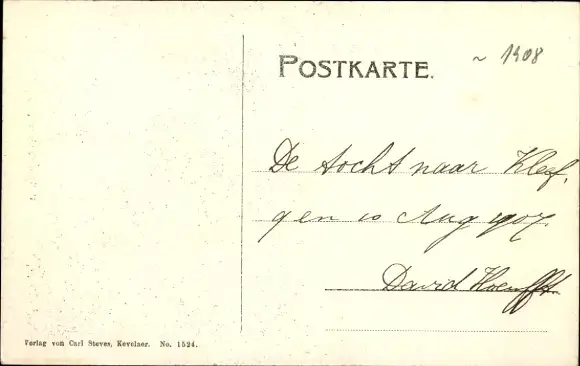 POSTKARTE.
~ 1908
De tocht naar Kleef.
9 en 10 Aug 1907.
David
Verlag von Carl Steves, Kevelaer. No. 1524.